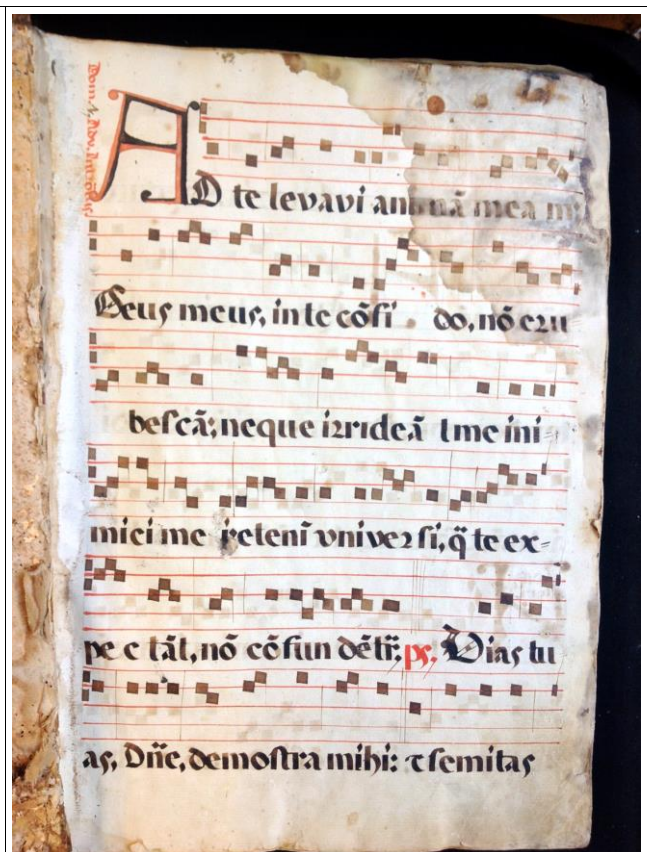 Dom. 1. Adv. Introitus.
AD te levavi animã mea m
Deus meus, in te cõfi do, nõ eru
bescã; neque irrideã t me ini
mici me i etenĩ universi, q̃ te ex=
pe c tãt, nõ cõfun dẽtr̃; ps. Vias tu
as, Dñe, demostra mihi: τ semitas